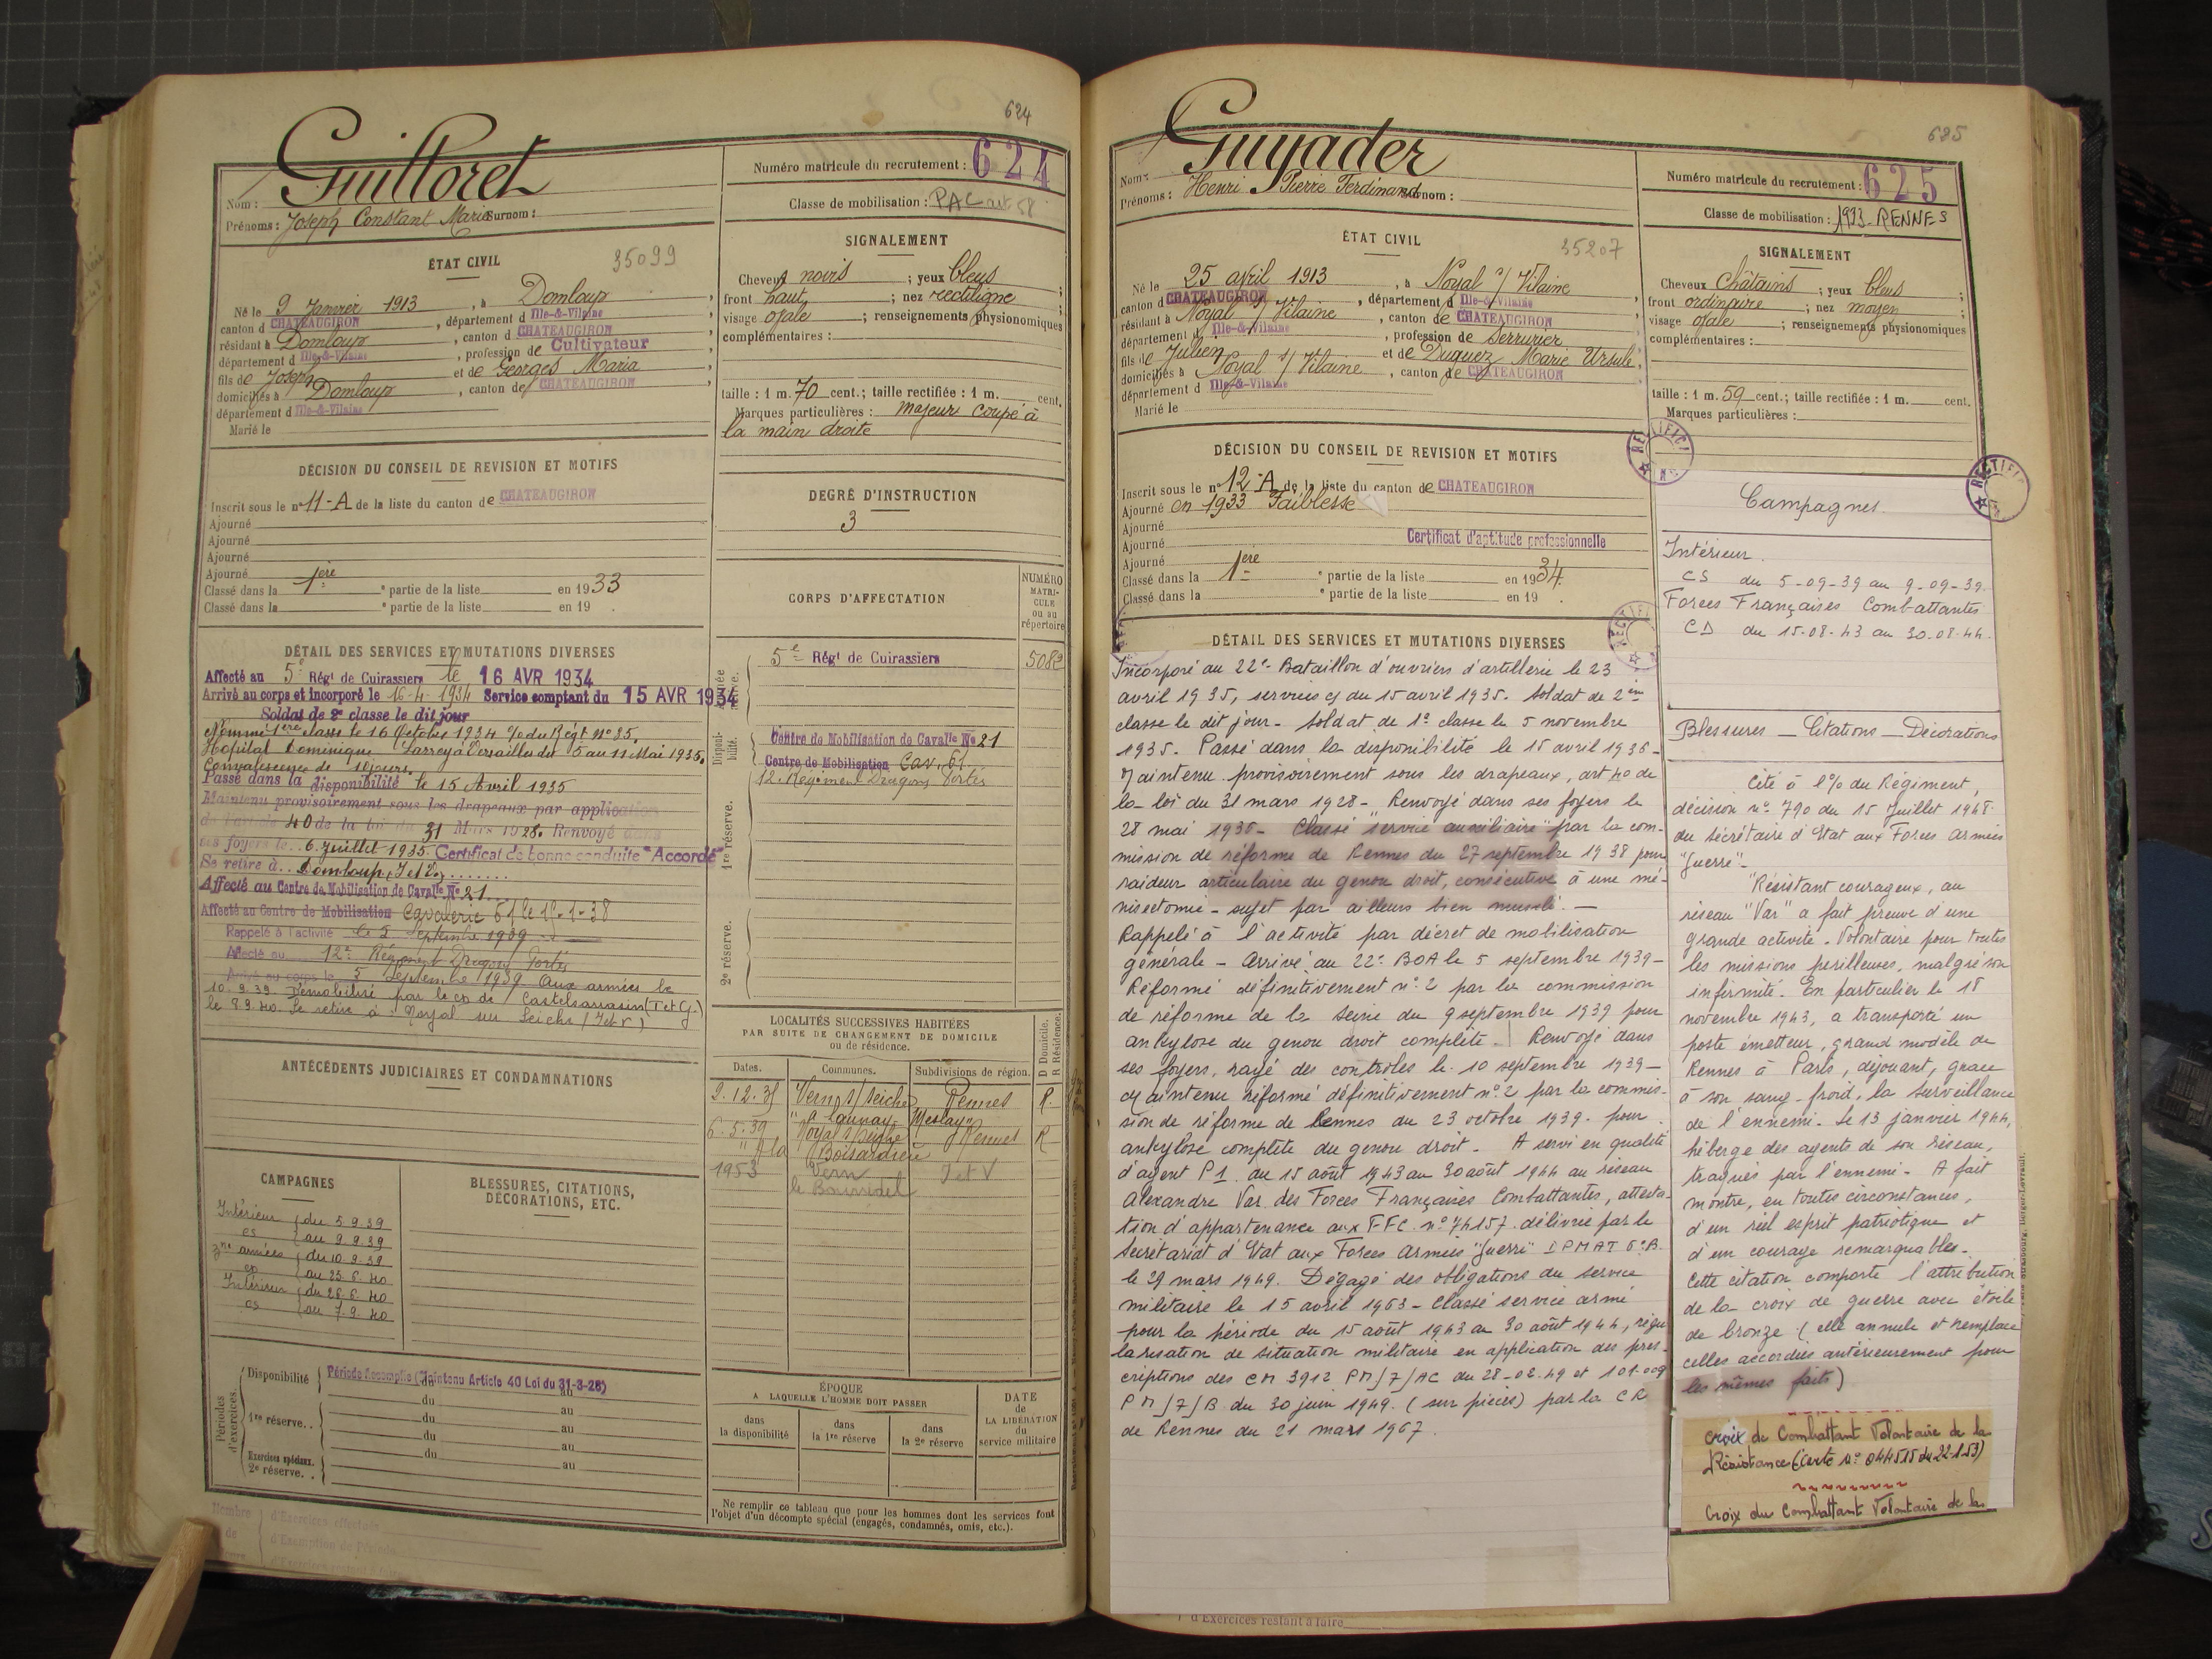 624
Nom : Guilloret
Prénoms : Joseph Constant Marie Surnom :
Numéro matricule du recrutement : 624
Classe de mobilisation : PAC art 58
ÉTAT CIVIL
35099
Né le 9 Janvier 1913, à Domloup,
canton d CHATEAUGIRON, département d Ille-&-Vilaine
résidant à Domloup, canton d CHATEAUGIRON
département d Ille-&-Vilaine, profession de Cultivateur
fils de Joseph et de Georges Maria
domiciliés à Domloup, canton de CHATEAUGIRON
département d Ille-&-Vilaine
Marié le
SIGNALEMENT
Cheveux noirs ; yeux bleus ;
front haut ; nez rectiligne
visage ovale ; renseignements physionomiques
complémentaires :
taille : 1 m. 70 cent.; taille rectifiée : 1 m. cent.
Marques particulières : majeur coupé à
la main droite
DÉCISION DU CONSEIL DE REVISION ET MOTIFS
Inscrit sous le n° 11-A de la liste du canton de CHATEAUGIRON
Ajourné
Ajourné
Ajourné
Ajourné
Classé dans la 1ère partie de la liste en 1933
Classé dans la e partie de la liste en 19 .
DEGRÉ D'INSTRUCTION
3
CORPS D'AFFECTATION
NUMÉRO MATRICULE ou au répertoire
5e Régt de Cuirassiers 5082
Centre de Mobilisation de Cavalle No 21
Centre de Mobilisation Cav. 61
12e Régiment Dragons Portés
Disponibilité.
1re réserve.
2e réserve.
DÉTAIL DES SERVICES ET MUTATIONS DIVERSES
Affecté au 5e Régt de Cuirassiers le 16 AVR 1934
Arrivé au corps et incorporé le 16-4-1934 Service comptant du 15 AVR 1934
Soldat de 2e classe le dit jour
Nommé 1ère classe le 16 Octobre 1934 o/o du Régt no 25.
Hopital Dominique Larrey à Versailles du 5 au 11 Mai 1935.
Convalescence de jours.
Passé dans la disponibilité le 15 Avril 1935
Maintenu provisoirement sous les drapeaux par application
de l'article 40 de la loi du 31 Mars 1928. Renvoyé dans
ses foyers le 6 Juillet 1935. Certificat de bonne conduite "Accordé"
Se retire à Domloup, (I et V).
Affecté au Centre de Mobilisation de Cavalle No 21
Affecté au Centre de Mobilisation Cavalerie 61 le 1-38
Rappelé à l'activité le 5 Septembre 1939
Affecté au 12e Régiment Dragons Portés
Arrivé au corps le 5 Septembre 1939 Aux armées le
10.9.39 Démobilisé par le CD de Castelsarrasin (T et G.)
le 8.9.40 Se retire à : Noyal sur Seiche (I et V)
ANTÉCÉDENTS JUDICIAIRES ET CONDAMNATIONS
LOCALITÉS SUCCESSIVES HABITÉES
PAR SUITE DE CHANGEMENT DE DOMICILE
ou de résidence.
Dates. Communes. Subdivisions de région. D Domicile. R Résidence.
2.12.35 Vern s/ Seiche Rennes R.
6.5.39 Noyal s/ Seiche Rennes R
1953 Vern I et V
CAMPAGNES
Intérieur du 5.9.39
CS au 9.9.39
Zne armées du 10.9.39
au 25.6.40
Intérieur du 26.6.40
CS au 7.9.40
BLESSURES, CITATIONS,
DÉCORATIONS, ETC.
Périodes d'exercices.
Disponibilité Période accomplie (Maintenu Article 40 Loi du 31-3-28)
du au
1re réserve..
du au
du au
du au
Exercices spéciaux.
2e réserve..
du au
ÉPOQUE
A LAQUELLE L'HOMME DOIT PASSER
dans la disponibilité
dans la 1re réserve
dans la 2e réserve
DATE de LA LIBÉRATION du service militaire
Ne remplir ce tableau que pour les hommes dont les services font
l'objet d'un décompte spécial (engagés, condamnés, omis, etc.).
625
Nom : Guyader
Prénoms : Henri Pierre Ferdinand Surnom :
Numéro matricule du recrutement : 625
Classe de mobilisation : 1933-RENNES
ÉTAT CIVIL
35207
Né le 25 avril 1913, à Noyal s/ Vilaine
canton d CHATEAUGIRON, département d Ille-&-Vilaine
résidant à Noyal s/ Vilaine, canton de CHATEAUGIRON
département d Ille-&-Vilaine, profession de Serrurier
fils de Julien et de Duguez Marie Ursule,
domiciliés à Noyal s/ Vilaine, canton de CHATEAUGIRON
département d Ille-&-Vilaine
Marié le
SIGNALEMENT
Cheveux Châtains ; yeux bleus ;
front ordinaire ; nez moyen
visage ovale ; renseignements physionomiques
complémentaires :
taille : 1 m. 59 cent.; taille rectifiée : 1 m. cent.
Marques particulières :
DÉCISION DU CONSEIL DE REVISION ET MOTIFS
Inscrit sous le n° 12-A de la liste du canton de CHATEAUGIRON
Ajourné en 1933 Faiblesse
Ajourné
Ajourné Certificat d'aptitude professionnelle
Ajourné
Classé dans la 1ere partie de la liste en 1934.
Classé dans la e partie de la liste en 19 .
DÉTAIL DES SERVICES ET MUTATIONS DIVERSES
Incorporé au 22e Bataillon d'ouvriers d'artillerie le 23
avril 1935, services cq du 15 avril 1935. Soldat de 2èm
classe le dit jour - Soldat de 1e classe le 5 novembre
1935. Passé dans la disponibilité le 15 avril 1936 -
Maintenu provisoirement sous les drapeaux, art 40 de
la loi du 31 mars 1928 - Renvoyé dans ses foyers le
28 mai 1936 - Classé "service auxiliaire" par la com-
mission de réforme de Rennes du 27 septembre 1938 pour
raideur articulaire du genou droit, consécutive à une mé-
nisectomie - sujet par ailleurs bien musclé. -
Rappelé à l'activité par décret de mobilisation
générale - Arrivé au 22e BOA le 5 septembre 1939 -
Réformé définitivement n°2 par la commission
de réforme de la Seine du 9 septembre 1939 pour
ankylose du genou droit complète. Renvoyé dans
ses foyers, rayé des contrôles le 10 septembre 1939 -
Maintenu réformé définitivement n°2 par la commis-
sion de réforme de Rennes du 23 octobre 1939. pour
ankylose complète du genou droit. A servi en qualité
d'agent P1. du 15 août 1943 au 30 août 1944 au réseau
Alexandre Var des Forces Françaises Combattantes, attesta-
tion d'appartenance aux F.F.C. n° 74157 délivrée par le
Secrétariat d'Etat aux Forces Armées "Guerre" DPMAT 6e B.
le 29 mars 1949. Dégagé des obligations du service
militaire le 15 avril 1963 - Classé service armé
pour la période du 15 août 1943 au 30 août 1944, régu
larisation de situation militaire en application des pres-
criptions des CM 3912 PM/7/AC du 28-02-49 et 101.009
PM/7/B du 30 juin 1949. (sur pièces) par la CR
de Rennes du 21 mars 1967.
Campagnes
Intérieur.
CS du 5-09-39 au 9-09-39.
Forces Françaises Combattantes
CD du 15-08-43 au 30.08.44.
Blessures - Citations - Décorations
Cité à l'o/o du Régiment,
décision n° 790 du 15 Juillet 1948
du Secrétaire d'Etat aux Forces Armées
"Guerre" -
"Résistant courageux, au
réseau "Var" a fait preuve d'une
grande activité. Volontaire pour toutes
les missions périlleuses, malgré son
infirmité. En particulier le 18
novembre 1943, a transporté un
poste émetteur, grand modèle de
Rennes à Paris, déjouant, grace
à son sang-froid, la surveillance
de l'ennemi. Le 13 janvier 1944,
héberge des agents de son réseau,
traqués par l'ennemi - A fait
montre, en toutes circonstances,
d'un réel esprit patriotique et
d'un courage remarquables -
Cette citation comporte l'attribution
de la croix de guerre avec étoile
de bronze (elle annule et remplace
celles accordées antérieurement pour
les mêmes faits)
Croix du Combattant Volontaire de la
Résistance (Carte n° 044515 du 22-1-53)
Croix du Combattant Volontaire de la
d'Exercices restant à faire